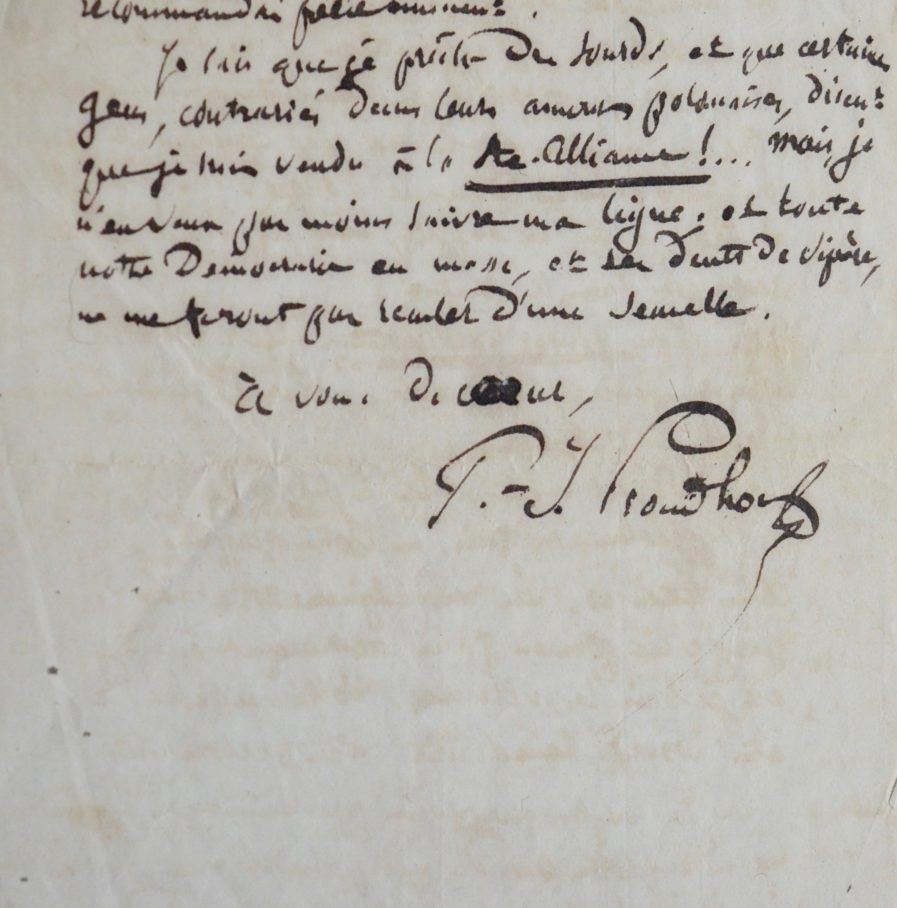 Je sais que je prêche des sourds, et que certaines
gens, contrariés dans leurs amours polonaises, disent
que je suis vendu à la Ste-Alliance !... mais je
n'en veux pas moins suivre ma ligne, et toute
notre Démocratie en masse, et ses dents de vipère,
ne me feront pas reculer d'une semelle.
à vous de cœur,
P.-J. Proudhon